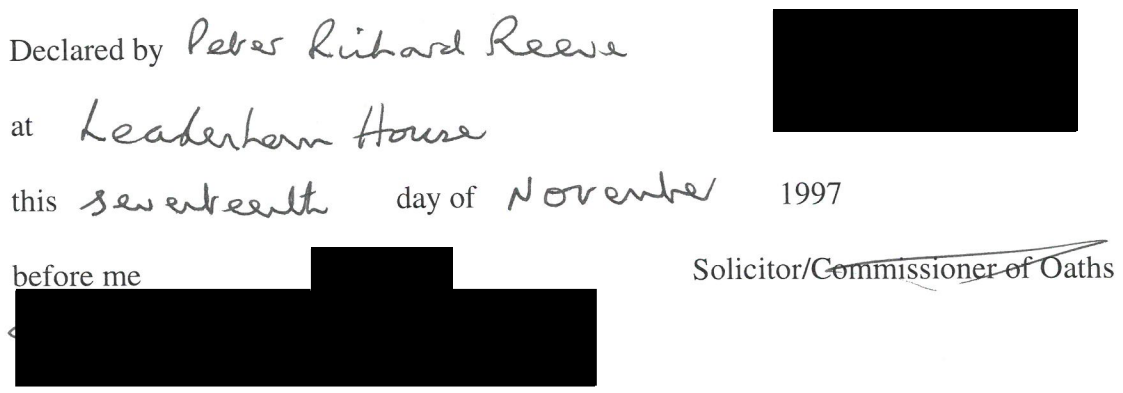 Declared by Peter Richard Reeve
at Leadenham House
this seventeenth day of November 1997
before me Solicitor/Commissioner of Oaths